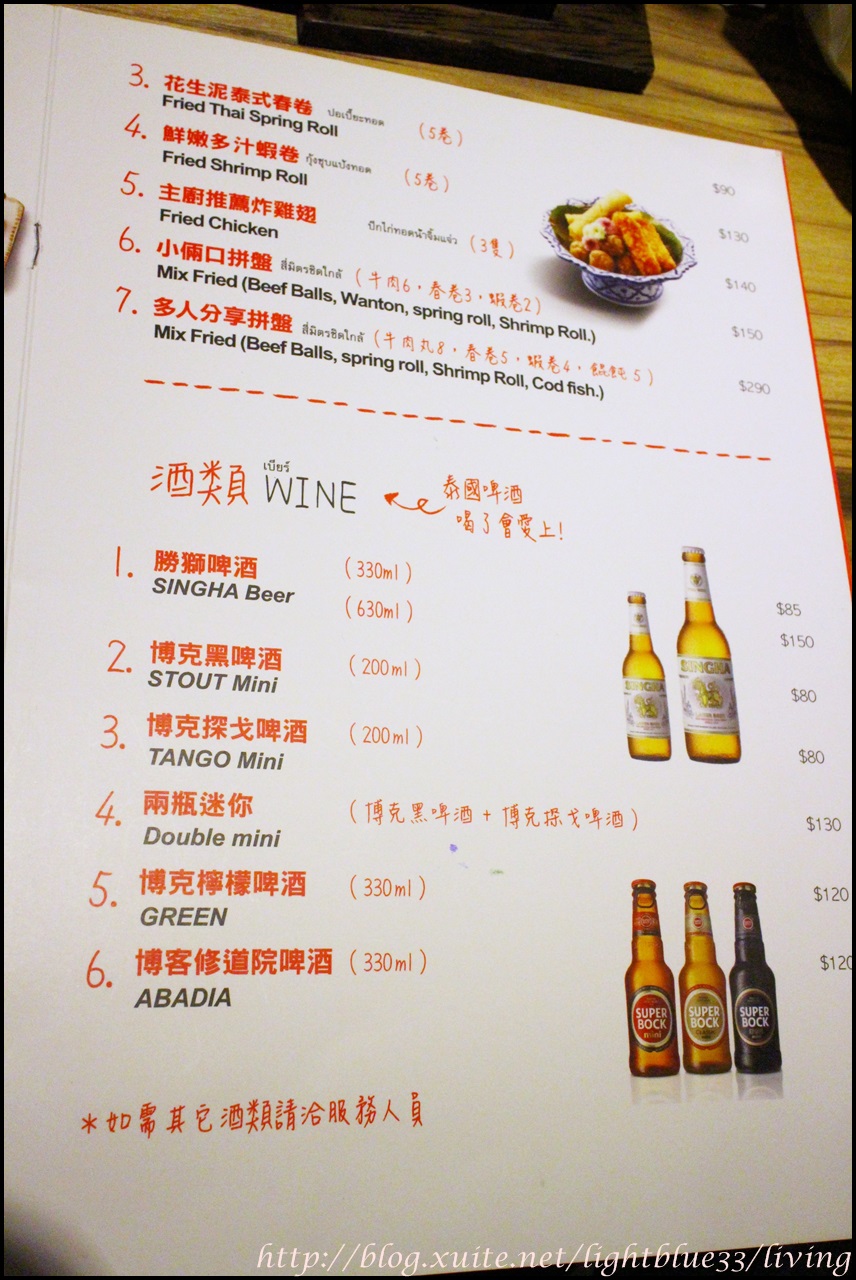 3. 花生泥泰式春卷 ปอเปี๊ยะทอด (5卷) $90
Fried Thai Spring Roll
4. 鮮嫩多汁蝦卷 กุ้งชุบแป้งทอด (5卷) $130
Fried Shrimp Roll
5. 主廚推薦炸雞翅 ปีกไก่ทอดน้ำจิ้มแจ่ว (3隻) $140
Fried Chicken
6. 小倆口拼盤 สี่มิตรชิดใกล้ (牛肉6,春卷3,蝦卷2) $150
Mix Fried (Beef Balls, Wanton, spring roll, Shrimp Roll.)
7. 多人分享拼盤 สี่มิตรชิดใกล้ (牛肉丸8,春卷5,蝦卷4,餛飩5) $290
Mix Fried (Beef Balls, spring roll, Shrimp Roll, Cod fish.)
酒類 เบียร์ WINE 泰國啤酒
喝了會愛上!
1. 勝獅啤酒 (330ml) $85
SINGHA Beer (630ml) $150
2. 博克黑啤酒 (200ml) $80
STOUT Mini
3. 博克探戈啤酒 (200ml) $80
TANGO Mini
4. 兩瓶迷你 (博克黑啤酒+博克探戈啤酒) $130
Double mini
5. 博克檸檬啤酒 (330ml) $120
GREEN
6. 博客修道院啤酒 (330ml) $120
ABADIA
SINGHA
SINGHA
SUPER BOCK mini
SUPER BOCK
SUPER BOCK
*如需其它酒類請洽服務人員
http://blog.xuite.net/lightblue33/living